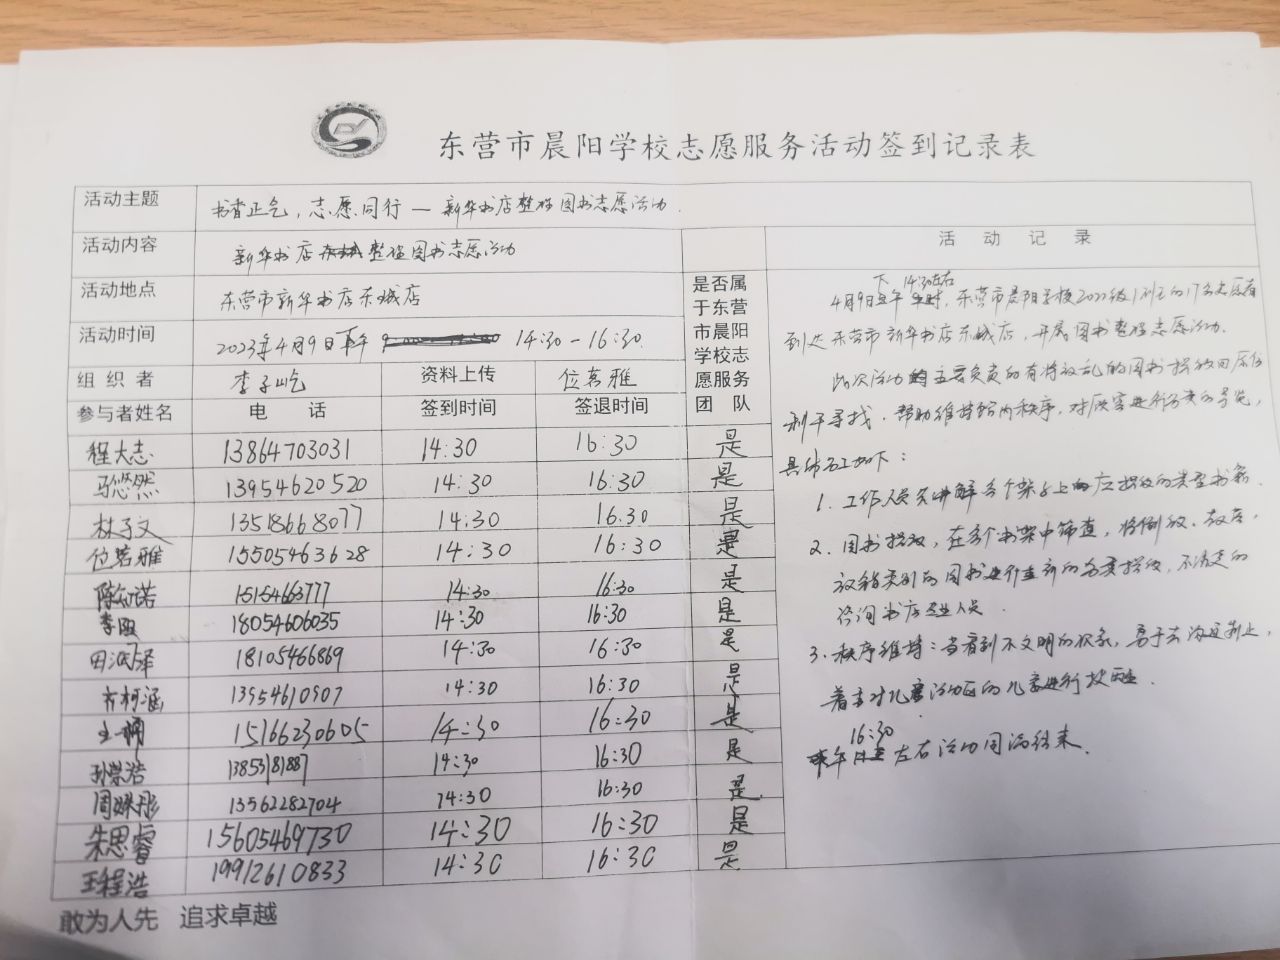 东营市晨阳学校志愿服务活动签到记录表
活动主题 书香正气，志愿同行 — 新华书店整理图书志愿活动
活动内容 新华书店 整理图书志愿活动
活动地点 东营市新华书店东城店
活动时间 2023年4月9日 14:30-16:30
组织者 李子屹 资料上传 位茗雅
参与者姓名 电话 签到时间 签退时间 是否属于东营市晨阳学校志愿服务团队
程大志 13864703031 14:30 16:30 是
马悠然 13954620520 14:30 16:30 是
林子文 13518668077 14:30 16.30 是
位茗雅 15505463628 14:30 16:30 是
陈诺 15154663777 14:30 16:30 是
李 18054606035 14:30 16:30 是
田泽 18105466869 14:30 16:30 是
方柯涵 13954610907 14:30 16:30 是
王 15166230605 14:30 16:30 是
孙崇浩 13853181887 14:30 16:30 是
周彤 13562282704 14:30 16:30 是
朱思睿 15605469730 14:30 16:30 是
王程浩 19912610833 14:30 16:30 是
活动记录
4月9日下午14:30左右，东营市晨阳学校2022级1班的17名志愿者
到达东营市新华书店东城店，开展图书整理志愿活动.
此次活动主要负责的有将放乱的图书摆放回原位
利于寻找，帮助维持馆内秩序，对
具体分工如下：
1. 工作人员讲解各个架子上应摆放的类型书籍.
2. 图书摆放，在各个书架中筛查，将倒放、
放错类别的图书进行重新的分类摆放，不清楚的
咨询书店工作人员
3. 秩序维持：当看到不文明的现象，勇于去沟通制止，
着重对儿童活动区的儿童进行
16:30左右活动圆满结束.
敢为人先 追求卓越